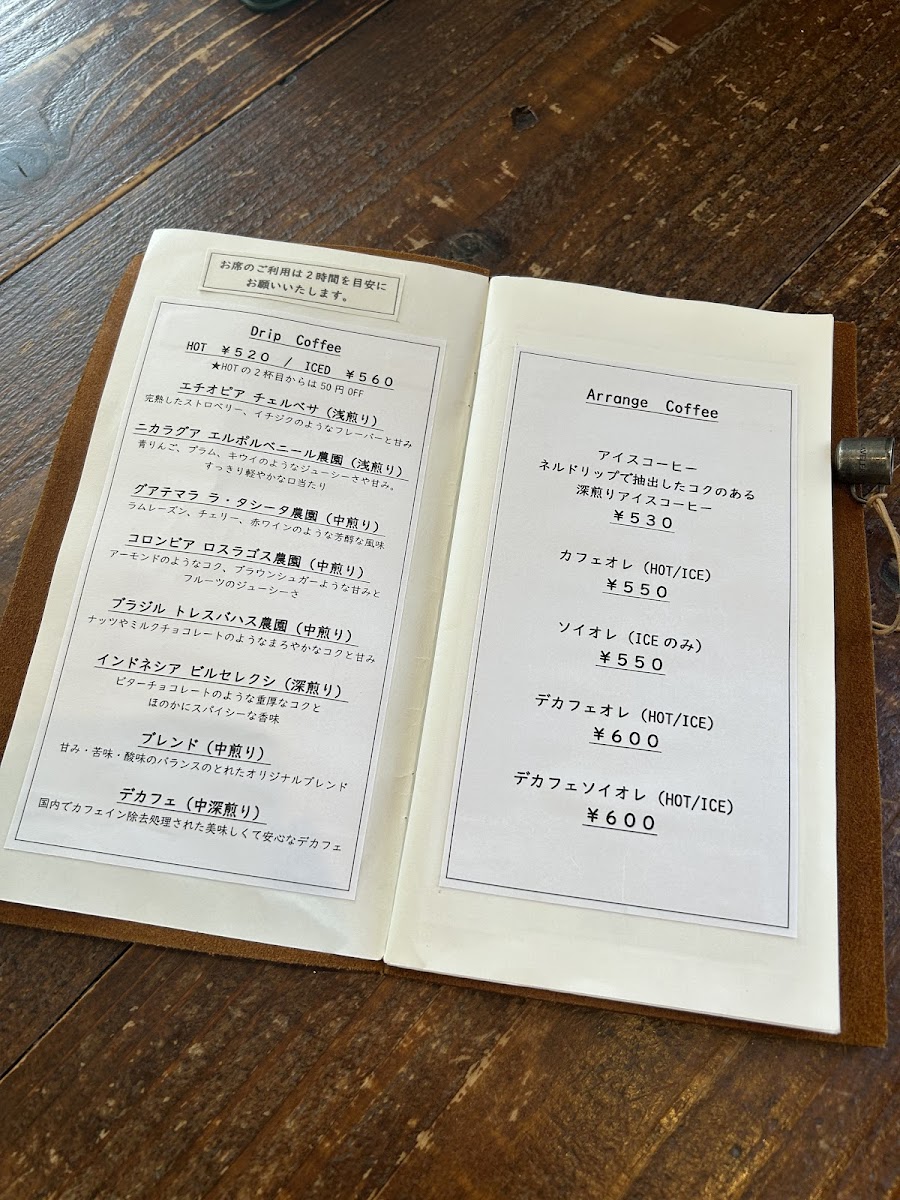 お席のご利用は２時間を目安に
お願いいたします。
Drip Coffee
HOT ￥５２０ / ICED ￥５６０
★HOTの２杯目からは50円OFF
エチオピア チェルベサ（浅煎り）
完熟したストロベリー、イチジクのようなフレーバーと甘み
ニカラグア エルポルベニール農園（浅煎り）
青りんご、プラム、キウイのようなジューシーさや甘み。
すっきり軽やかな口当たり
グアテマラ ラ・タシータ農園（中煎り）
ラムレーズン、チェリー、赤ワインのような芳醇な風味
コロンビア ロスラゴス農園（中煎り）
アーモンドのようなコク、ブラウンシュガーような甘みと
フルーツのジューシーさ
ブラジル トレスバハス農園（中煎り）
ナッツやミルクチョコレートのようなまろやかなコクと甘み
インドネシア ビルセレクシ（深煎り）
ビターチョコレートのような重厚なコクと
ほのかにスパイシーな香味
ブレンド（中煎り）
甘み・苦味・酸味のバランスのとれたオリジナルブレンド
デカフェ（中深煎り）
国内でカフェイン除去処理された美味しくて安心なデカフェ
Arrange Coffee
アイスコーヒー
ネルドリップで抽出したコクのある
深煎りアイスコーヒー
￥５３０
カフェオレ（HOT/ICE）
￥５５０
ソイオレ（ICEのみ）
￥５５０
デカフェオレ（HOT/ICE）
￥６００
デカフェソイオレ（HOT/ICE）
￥６００